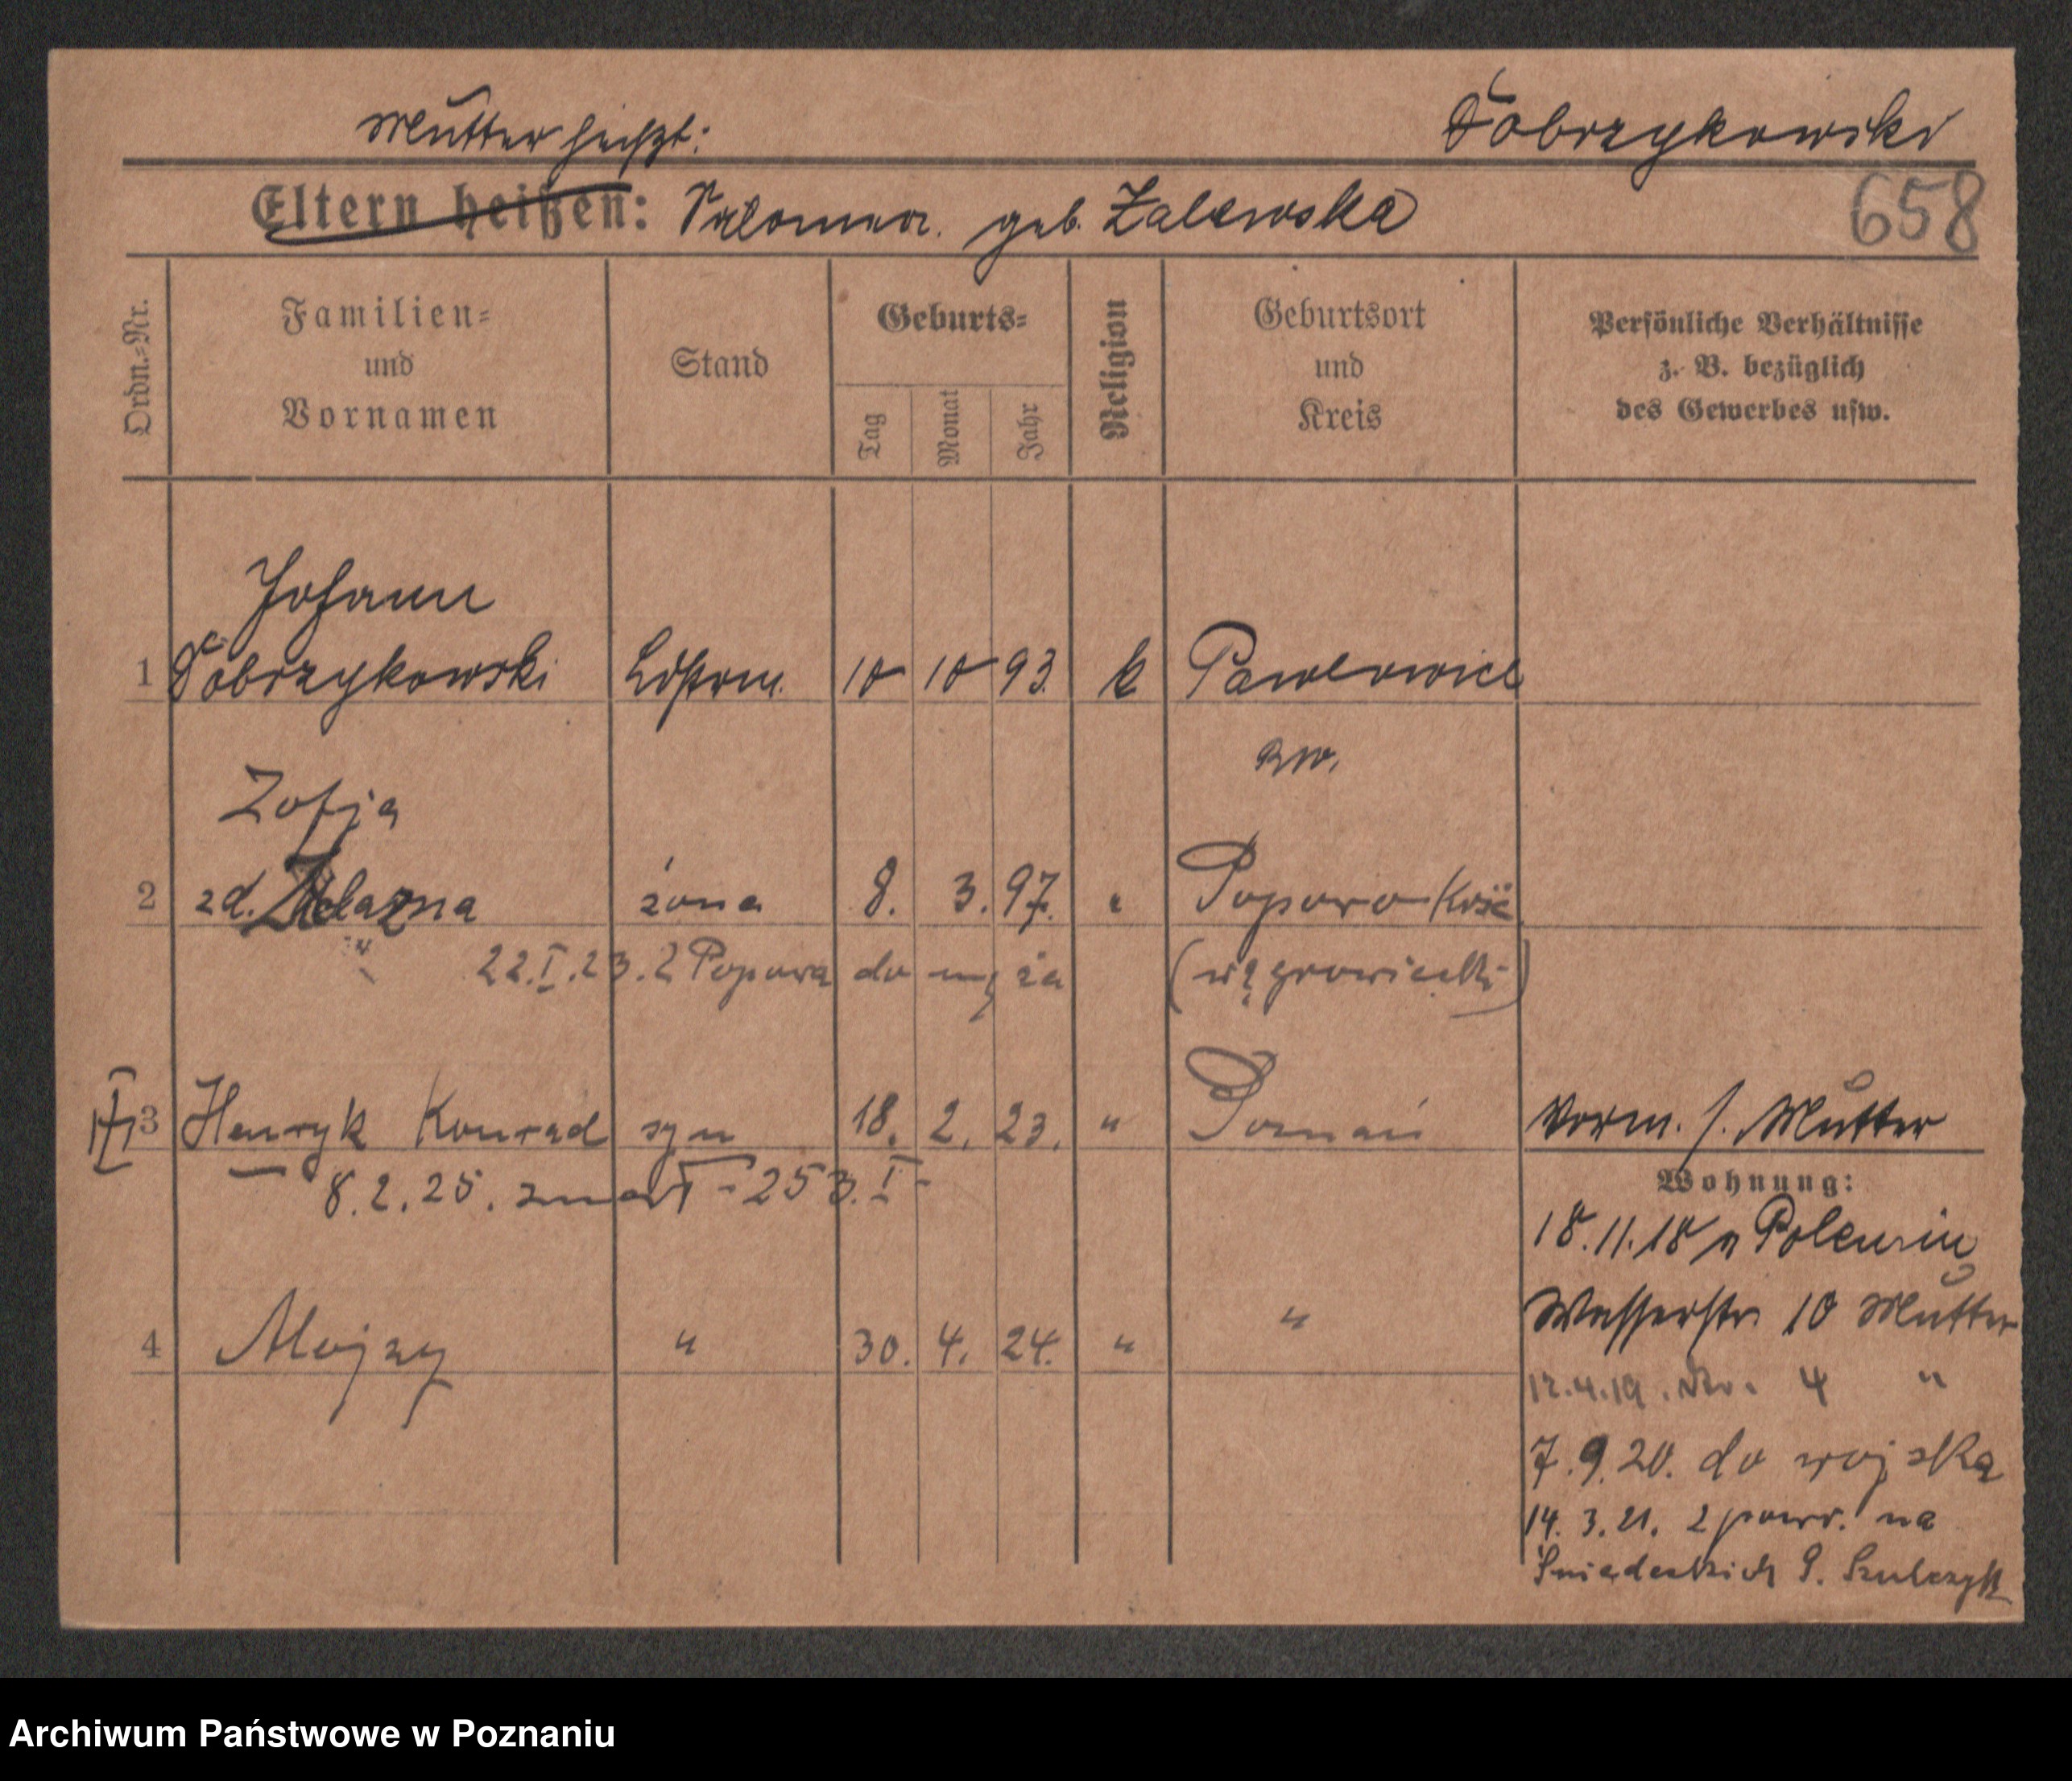 Mutter heißt:
Dobrzykowski
Eltern heißen: Salomea. geb. Zalewska
658
Ordn.=Nr.
Familien=
und
Vornamen
Stand
Geburts=
Tag
Monat
Jahr
Religion
Geburtsort
und
Kreis
Persönliche Verhältnisse
z. B. bezüglich
des Gewerbes usw.
Johann
1 Dobrzykowski 10 10 93. k Pawlowice
Zofja
2 zd. Żelazna żona 8. 3. 97. " Popowo Kośc
22.I.23. z Popowa do męża (wągrowiecki)
3 Henryk Konrad syn 18. 2. 23. " Poznań Vorm. s. Mutter
8.2.25. zmarł - 253.I -
Wohnung:
18.11.18 n
4 Alojzy " 30. 4. 24. " "
Wasserstr 10 Mutter
12.4.19. 4 "
7.9.20. do wojska
14.3.21. z powr. na
Śniadeckich 9. Szulczyk
Archiwum Państwowe w Poznaniu